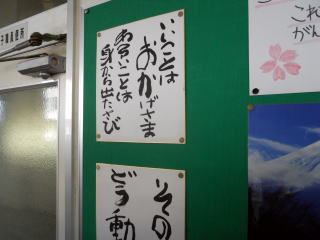 いいことは
おかげさま
わるいことは
身から出たさび
その
どう動
これ
がん